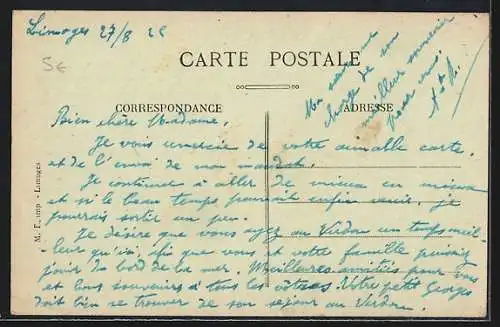 Limoges 27/8 25
5€
CARTE POSTALE
CORRESPONDANCE
ADRESSE
Ma sœur me
charge de son
meilleur souvenir
pour vous
M. F., imp. - Limoges
Bien chère Madame,
Je vous remercie de votre aimable carte
et de l'envoi de mon mandat.
Je continue à aller de mieux en mieux
et si le beau temps pouvait enfin venir, je
pourrais sortir un peu.
Je désire que vous ayez au Verdon un temps meil-
leur qu'ici, afin que vous et votre famille puissiez
jouir du bord de la mer. Meilleures amitiés pour vous
et bons souvenirs à tous les vôtres. Votre petit Georges
doit bien se trouver de son séjour au Verdon.